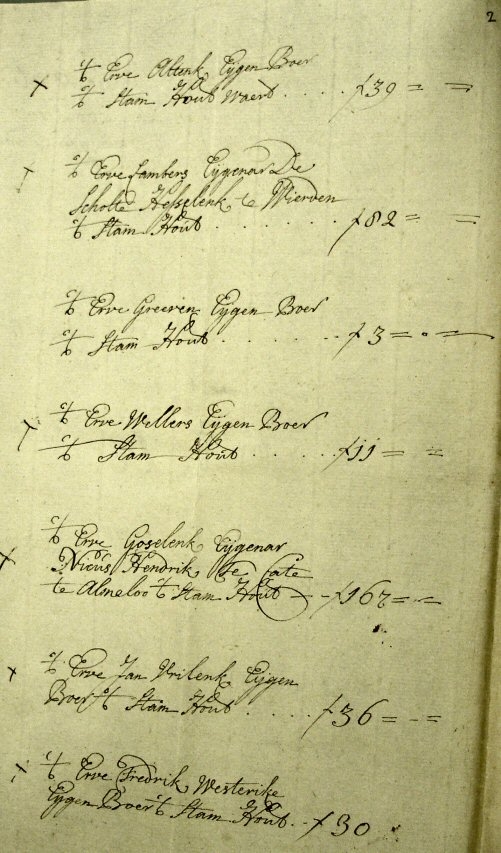 2
x 't Erve Altenk Eygen Boer
't Stam Hout waert . . . . ƒ39 = =
x 't Erve Lambers Eygenar De
Scholte Hesselenk te Wierden
't Stam Hout . . . . . . ƒ82 = =
't Erve Greeven Eygen Boer
't Stam Hout . . . . . . ƒ3 = . =
x 't Erve Wellers Eygen Boer
't Stam Hout . . . . . ƒ11 = =
x 't Erve Goselenk Eygenar
Hendrik Te Cate
te Almeloo 't Stam Hout - ƒ167 = - =
x 't Erve Jan Vrilenk Eygen
Boer 't Stam Hout . . . . . ƒ36 = - =
x 't Erve Fredrik Westerike
Eygen Boer 't Stam Hout . - ƒ30